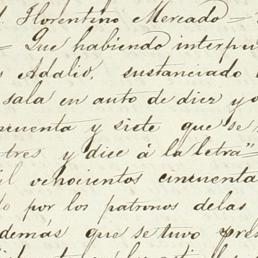 Florentino Mercado =
= Que habiendo interpu
Adalio, sustanciado
sala en auto de diez y o
cuenta y siete que se
tres y dice á la letra"=
il vchocientos cincuenta
por los patronos de las
demás que se tuvo pres